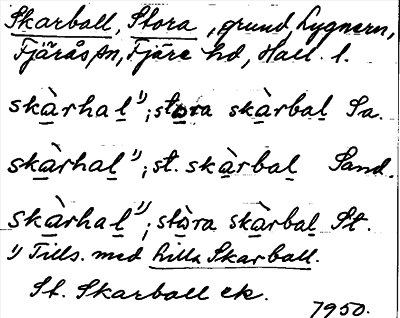 Skarball, Stora, grund, Lygnern,
Fjärås sn, Fjäre hd, Hall. l.
skàrhal¹⁾; stora skàrbal Sa.
skàrhal¹⁾; st. skàrbal Sand.
skàrhal¹⁾; stòra skàrbal St.
¹⁾ Tills. med Lilla Skarball.
St. Skarball ek.
1950.